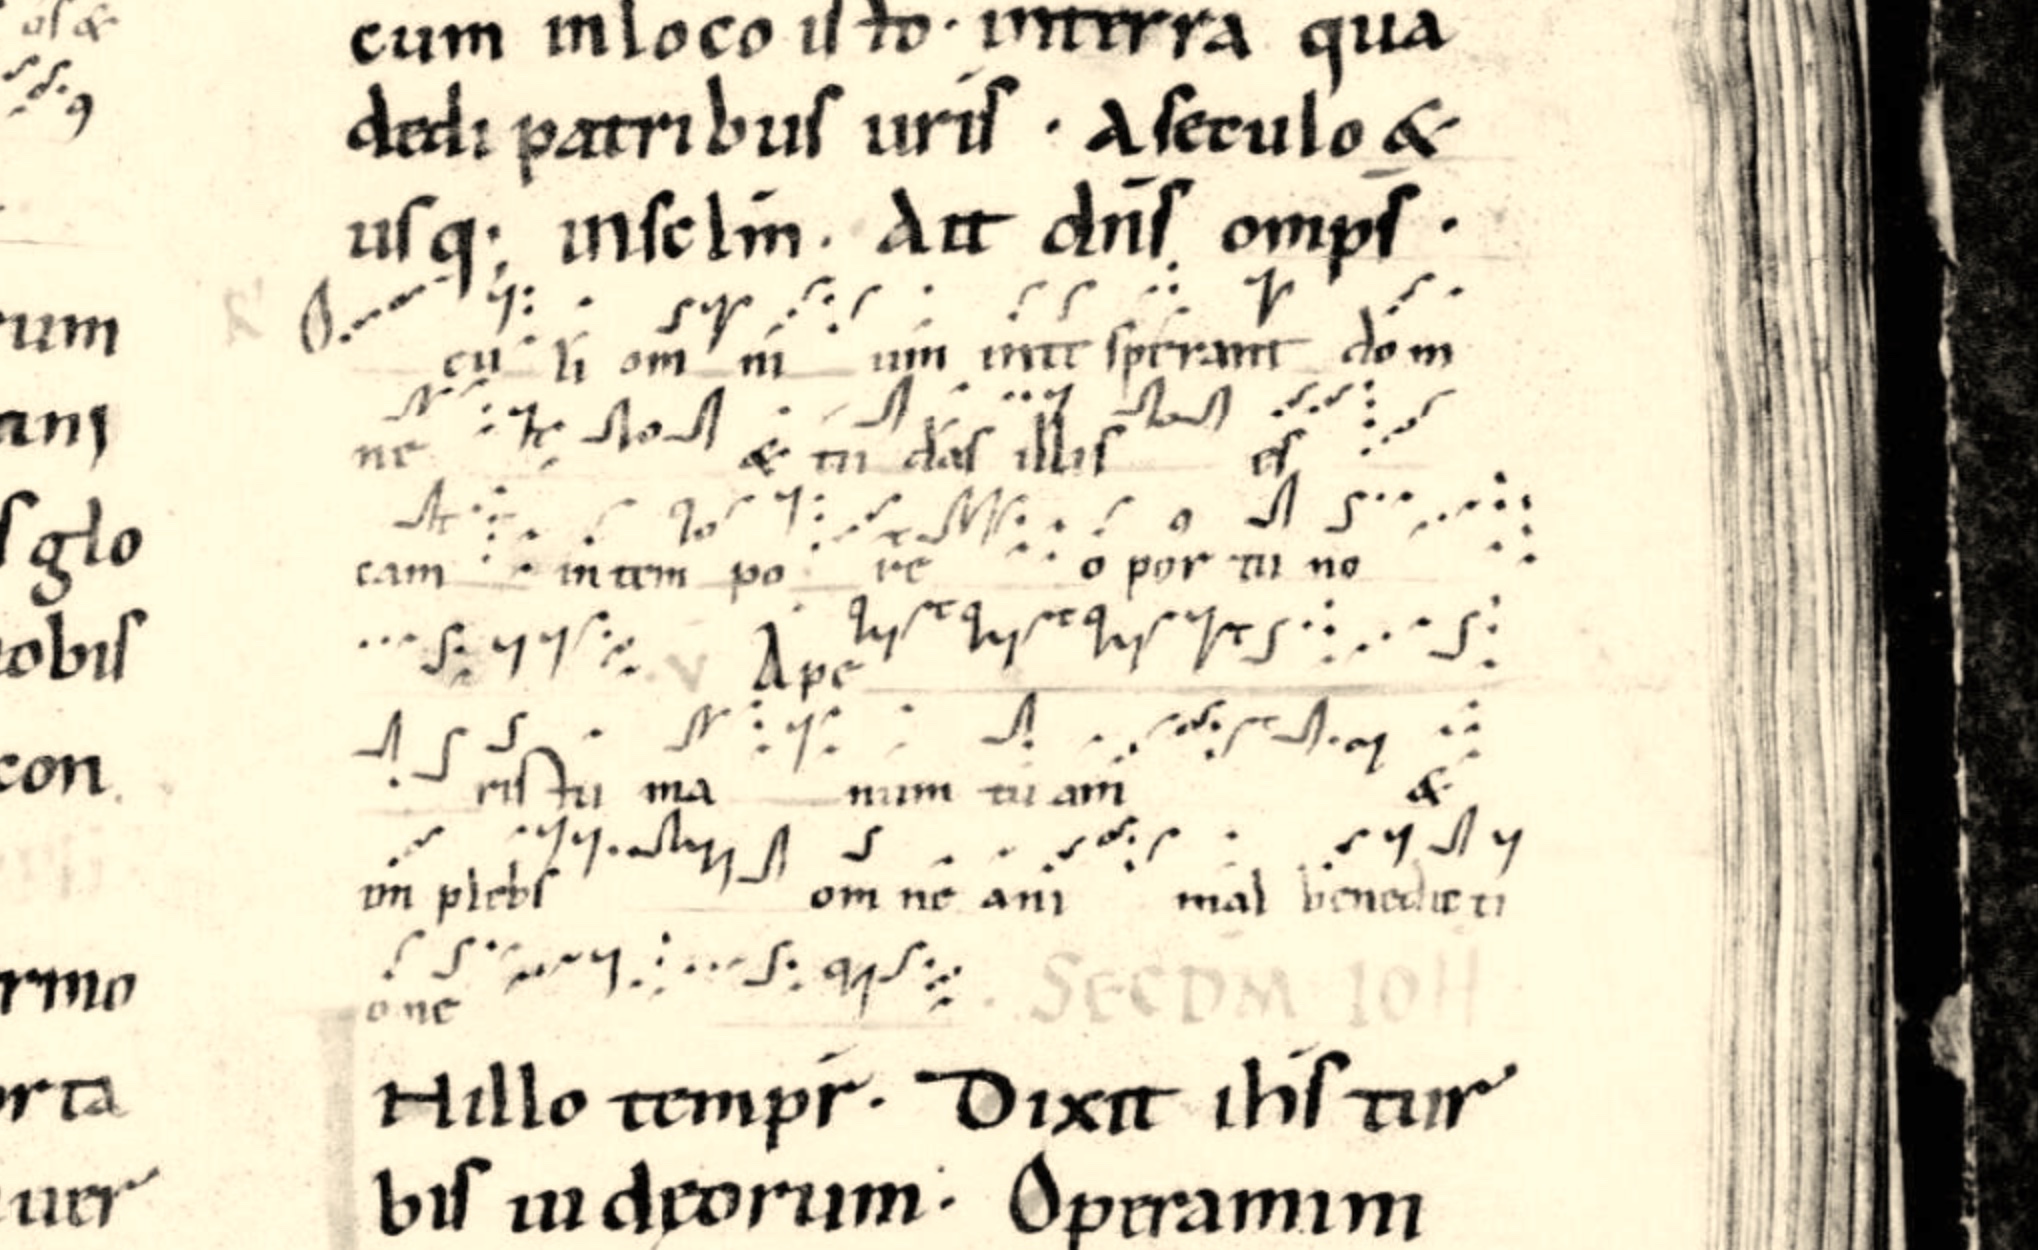 ol &
rum
ani
ſ glo
nobiſ
con
rmo
orta
uer
cum in loco iſto · interra qua
dedi patribuſ uriſ · Aſeculo &
uſq; inſeclm̄ · Ait dn̄ſ omp̄ſ ·
R
O cu li om ni um inte ſperant dom
ne & tu daſ illiſ eſ
cam in tem po re o por tu no
V Ape
riſ tu ma num tu am &
im plebſ om ne ani mal benedicti
o ne SECDM IOH
In illo tempr̄ · Dixit ih̄ſ tur
biſ iudeorum · Operamini